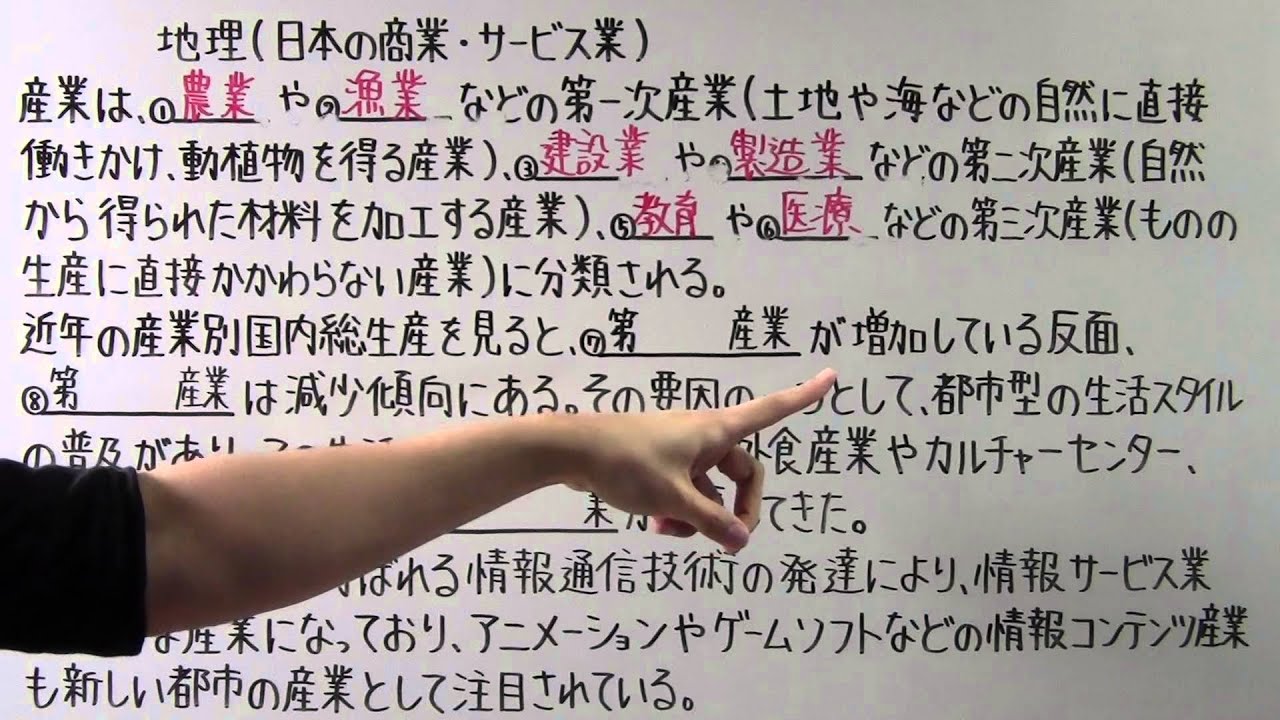 地理(日本の商業・サービス業)
産業は、①農業や②漁業などの第一次産業(土地や海などの自然に直接
働きかけ、動植物を得る産業)、③建設業や④製造業などの第二次産業(自然
から得られた材料を加工する産業)、⑤教育や⑥医療などの第三次産業(ものの
生産に直接かかわらない産業)に分類される。
近年の産業別国内総生産を見ると、⑦第 産業が増加している反面、
⑧第 産業は減少傾向にある。その要因の として、都市型の生活スタイル
の普及があり、 外食産業やカルチャーセンター、
業が てきた。
ばれる情報通信技術の発達により、情報サービス業
な産業になっており、アニメーションやゲームソフトなどの情報コンテンツ産業
も新しい都市の産業として注目されている。